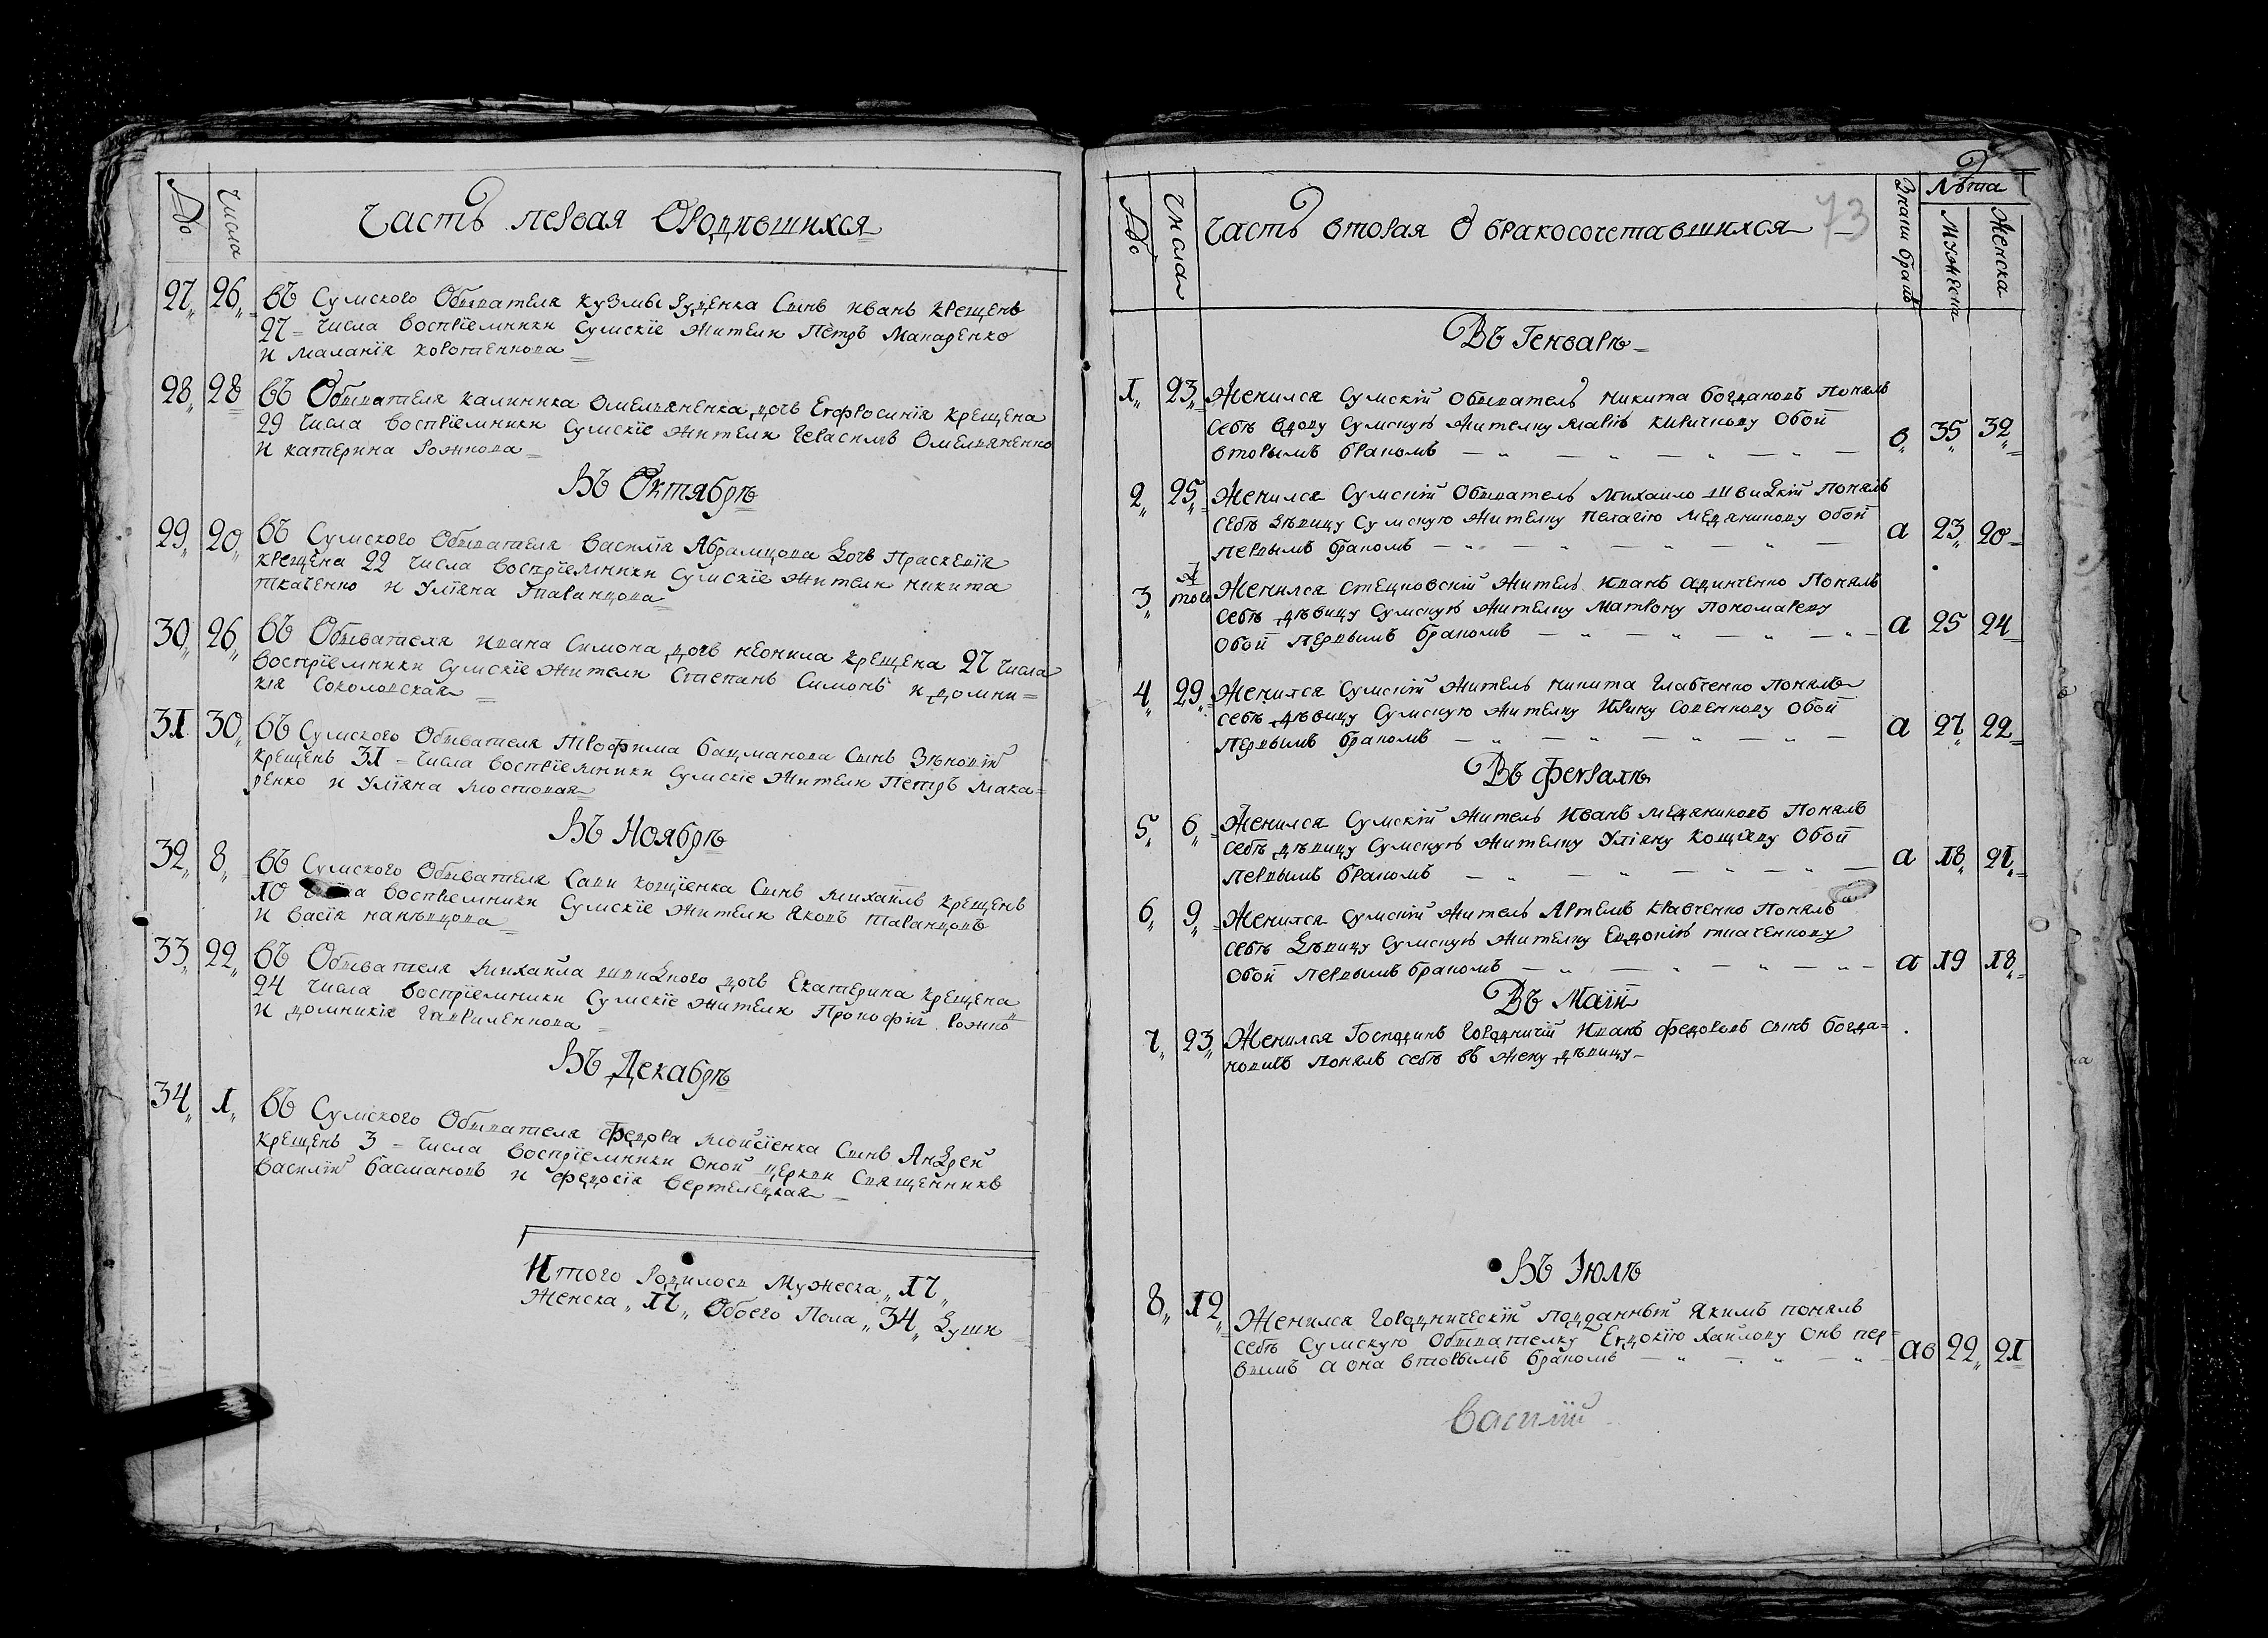 №
Числа
Часть первая О родившихся
27 26 въ Сумского Обывателя кузмы Зуценка Сынъ иванъ крещенъ
27 числа восприемники Сумские жители Петръ Макаренко
и маланія коротенкова
28 28 въ Обывателя калиника омельяненка дочь Егфросинія крещена
29 числа восприемники Сумскіе жители Герасимъ Омельяненко
и катерина рожкова
Въ Октябрѣ
29 20 въ Сумского Обывателя василія Абрамцова дочь Праскевія
крещена 22 числа восприемники Сумскіе жители никита
ткаченко и Уліяна таранцова
30 26 въ Обывателя ивана Симона дочь неонила крещена 27 числа
восприемники Сумскіе жители Степанъ Симонъ и домни=
кія Соколовская
31 30 въ Сумского Обывателя трофима бацманова Сынъ Зѣновій
крещенъ 31 числа восприемники Сумскіе жители Петръ мака=
ренко и Уліяна мостовая
Въ Ноябрѣ
32 8 въ Сумского Обывателя Савы кощіенка Сынъ михаилъ крещенъ
10 числа восприемники Сумскіе жители яковъ таранцовъ
и васія нанѣвцова
33 22 въ Обывателя михаила швидкого дочь Екатерина крещена
24 числа восприемники Сумскіе жители Прокофій рожко
и домникія гавриленкова
Въ Декабрѣ
34 1 въ Сумского Обывателя федора мойсіенка Сынъ Андрей
крещенъ 3 числа восприемники оной церкви Священникъ
василій басмановъ и федосія вертелецкая
Итого родилося Мужеска 17
Женска 17 Обоего Пола 34 души
№
Числа
Часть вторая О бракосочетавшихся 73
Лѣта
Мужеска
Женска
Въ Генварѣ
1 23 Женился Сумскій Обыватель никита богдановъ Понялъ
себѣ вдову Сумскую жителку марію киричкову Обой
вторымъ бракомъ в 35 32
2 25 Женился Сумскій Обыватель михаило швидкій Понялъ
себѣ дѣвицу Сумскую жителку пелагію медяникову Обой
первымъ бракомъ а 23 20
3 того Женился стецковскій житель иванъ адинченко Понялъ
себѣ дѣвицу Сумскую жителку матрону пономареву
Обой первымъ бракомъ а 25 24
4 29 Женился Сумскій житель никита главченко понялъ
себѣ дѣвицу Сумскую жителку ирину совенкову Обой
первымъ бракомъ а 27 22
Въ фегралѣ
5 6 Женился Сумскій житель иванъ медяниковъ Понялъ
себѣ дѣвицу Сумскую жителку Уліяну кощіеву Обой
первымъ бракомъ а 18 21
6 9 Женился Сумскій житель Артемъ кравченко Понялъ
себѣ дѣвицу Сумскую жителку Евдокію ткаченкову
Обой первымъ бракомъ а 19 18
Въ Маіи
7 23 Женился Господинъ городничій иванъ федоровъ сынъ богда=
новичъ понялъ себѣ въ жену дѣвицу
Въ Іюлѣ
8 12 Женился городническій подданный якимъ понялъ
себѣ Сумскую Обывателку Егдокію хаилову онъ пер=
вымъ а она вторымъ бракомъ ав 22 21
василій